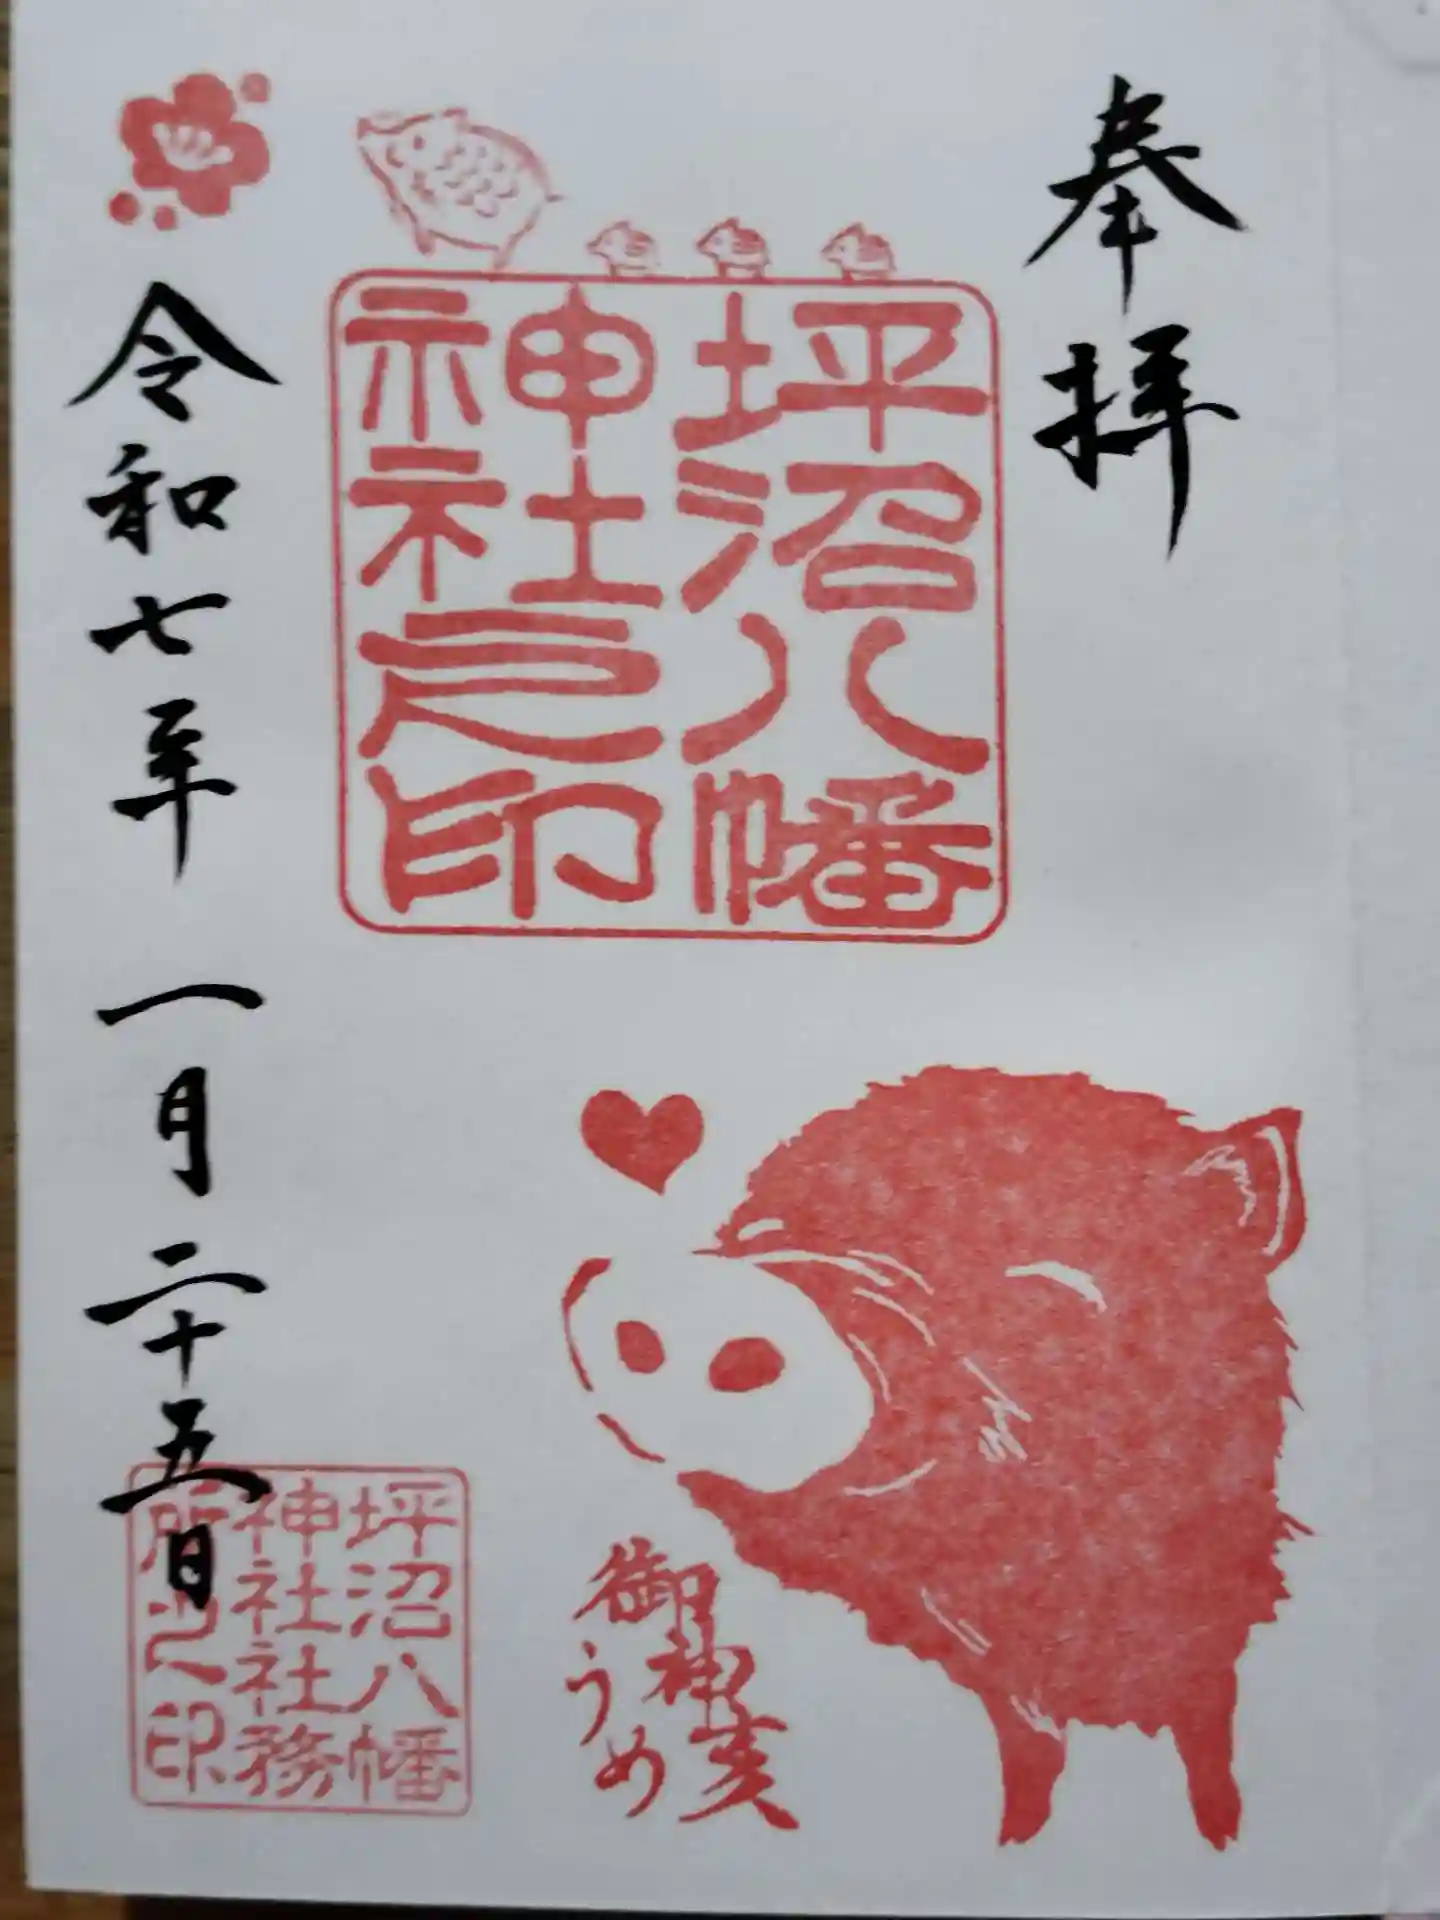 奉拝
坪沼八幡
神社之印
御神亥
うめ
坪沼八幡
神社社務
所之印
令和七年 一月二十五日